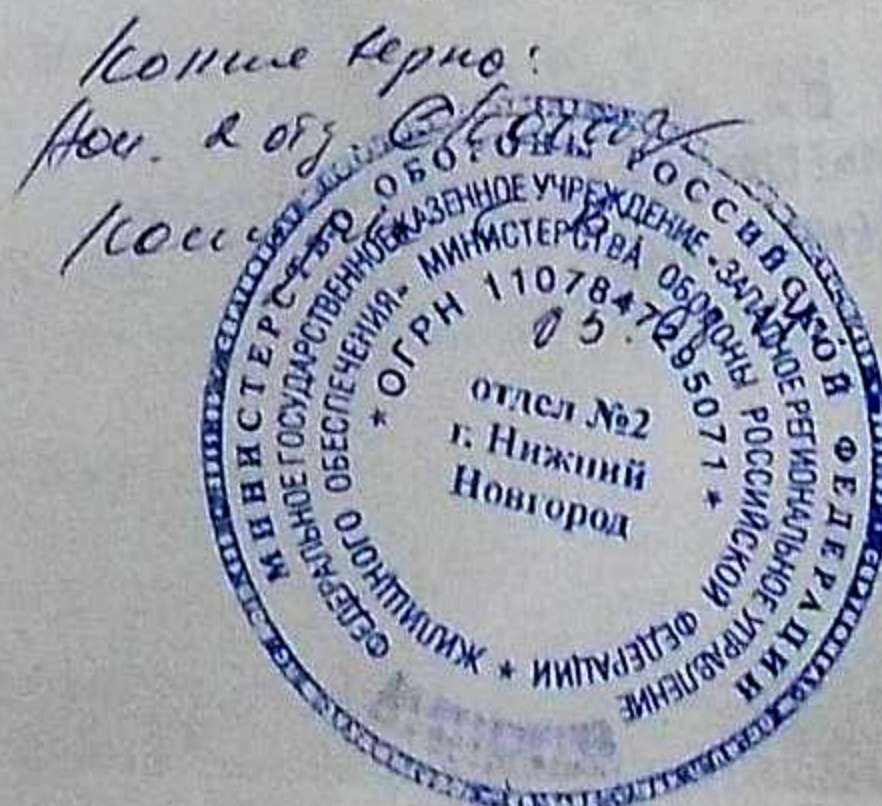 Копие верна:
Нач. 2 отд.
МИНИСТЕРСТВО ОБОРОНЫ РОССИЙСКОЙ ФЕДЕРАЦИИ
ФЕДЕРАЛЬНОЕ ГОСУДАРСТВЕННОЕ КАЗЕННОЕ УЧРЕЖДЕНИЕ „ЗАПАДНОЕ РЕГИОНАЛЬНОЕ УПРАВЛЕНИЕ
ЖИЛИЩНОГО ОБЕСПЕЧЕНИЯ" МИНИСТЕРСТВА ОБОРОНЫ РОССИЙСКОЙ ФЕДЕРАЦИИ *
* ОГРН 1107847295071 *
отдел №2
г. Нижний
Новгород